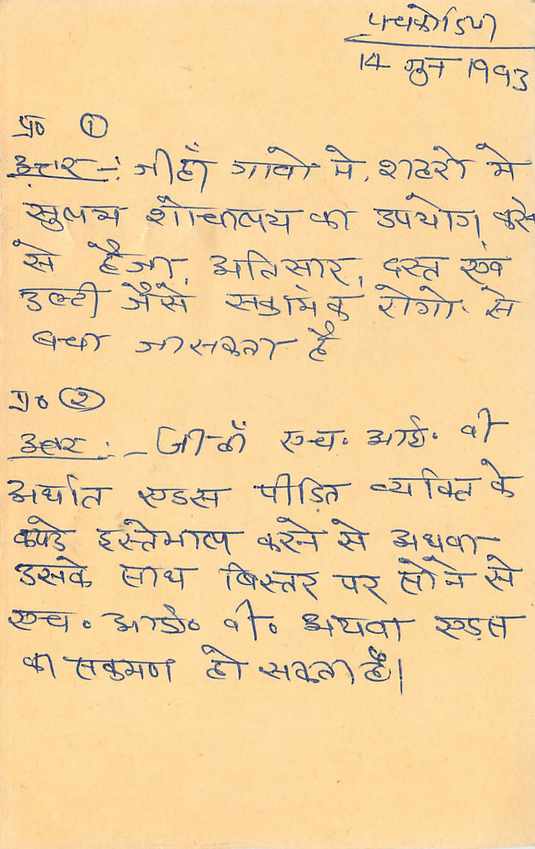 पचकोडिया
14 जुन 1993
प्र० ①
उत्तर -: जीहाँ गावो मे, शहरो मे
सुलभ शोचालय का उपयोग करने
से हैजा, अतिसार, दस्त एवं
उल्टी जैसे सक्रामक रोगो से
बचा जा सकता है
प्र० ②
उत्तर :- जी हाँ एच. आई. वी
अर्थात एडस पीडित व्यक्ति के
कपडे इस्तेमाल करने से अथवा
उसके साथ बिस्तर पर सोने से
एच. आई. वी. अथवा एड्स
का सक्रमण हो सकता है।